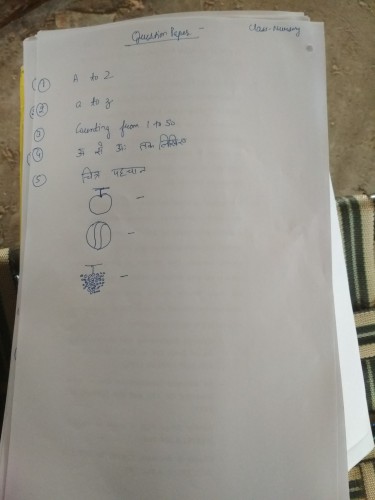 Question Paper -
Class - Nursery
① A to Z
② a to z
③ Counting from 1 to 50
④ अ से अः तक लिखिए
⑤ चित्र पहचान
-
-
-